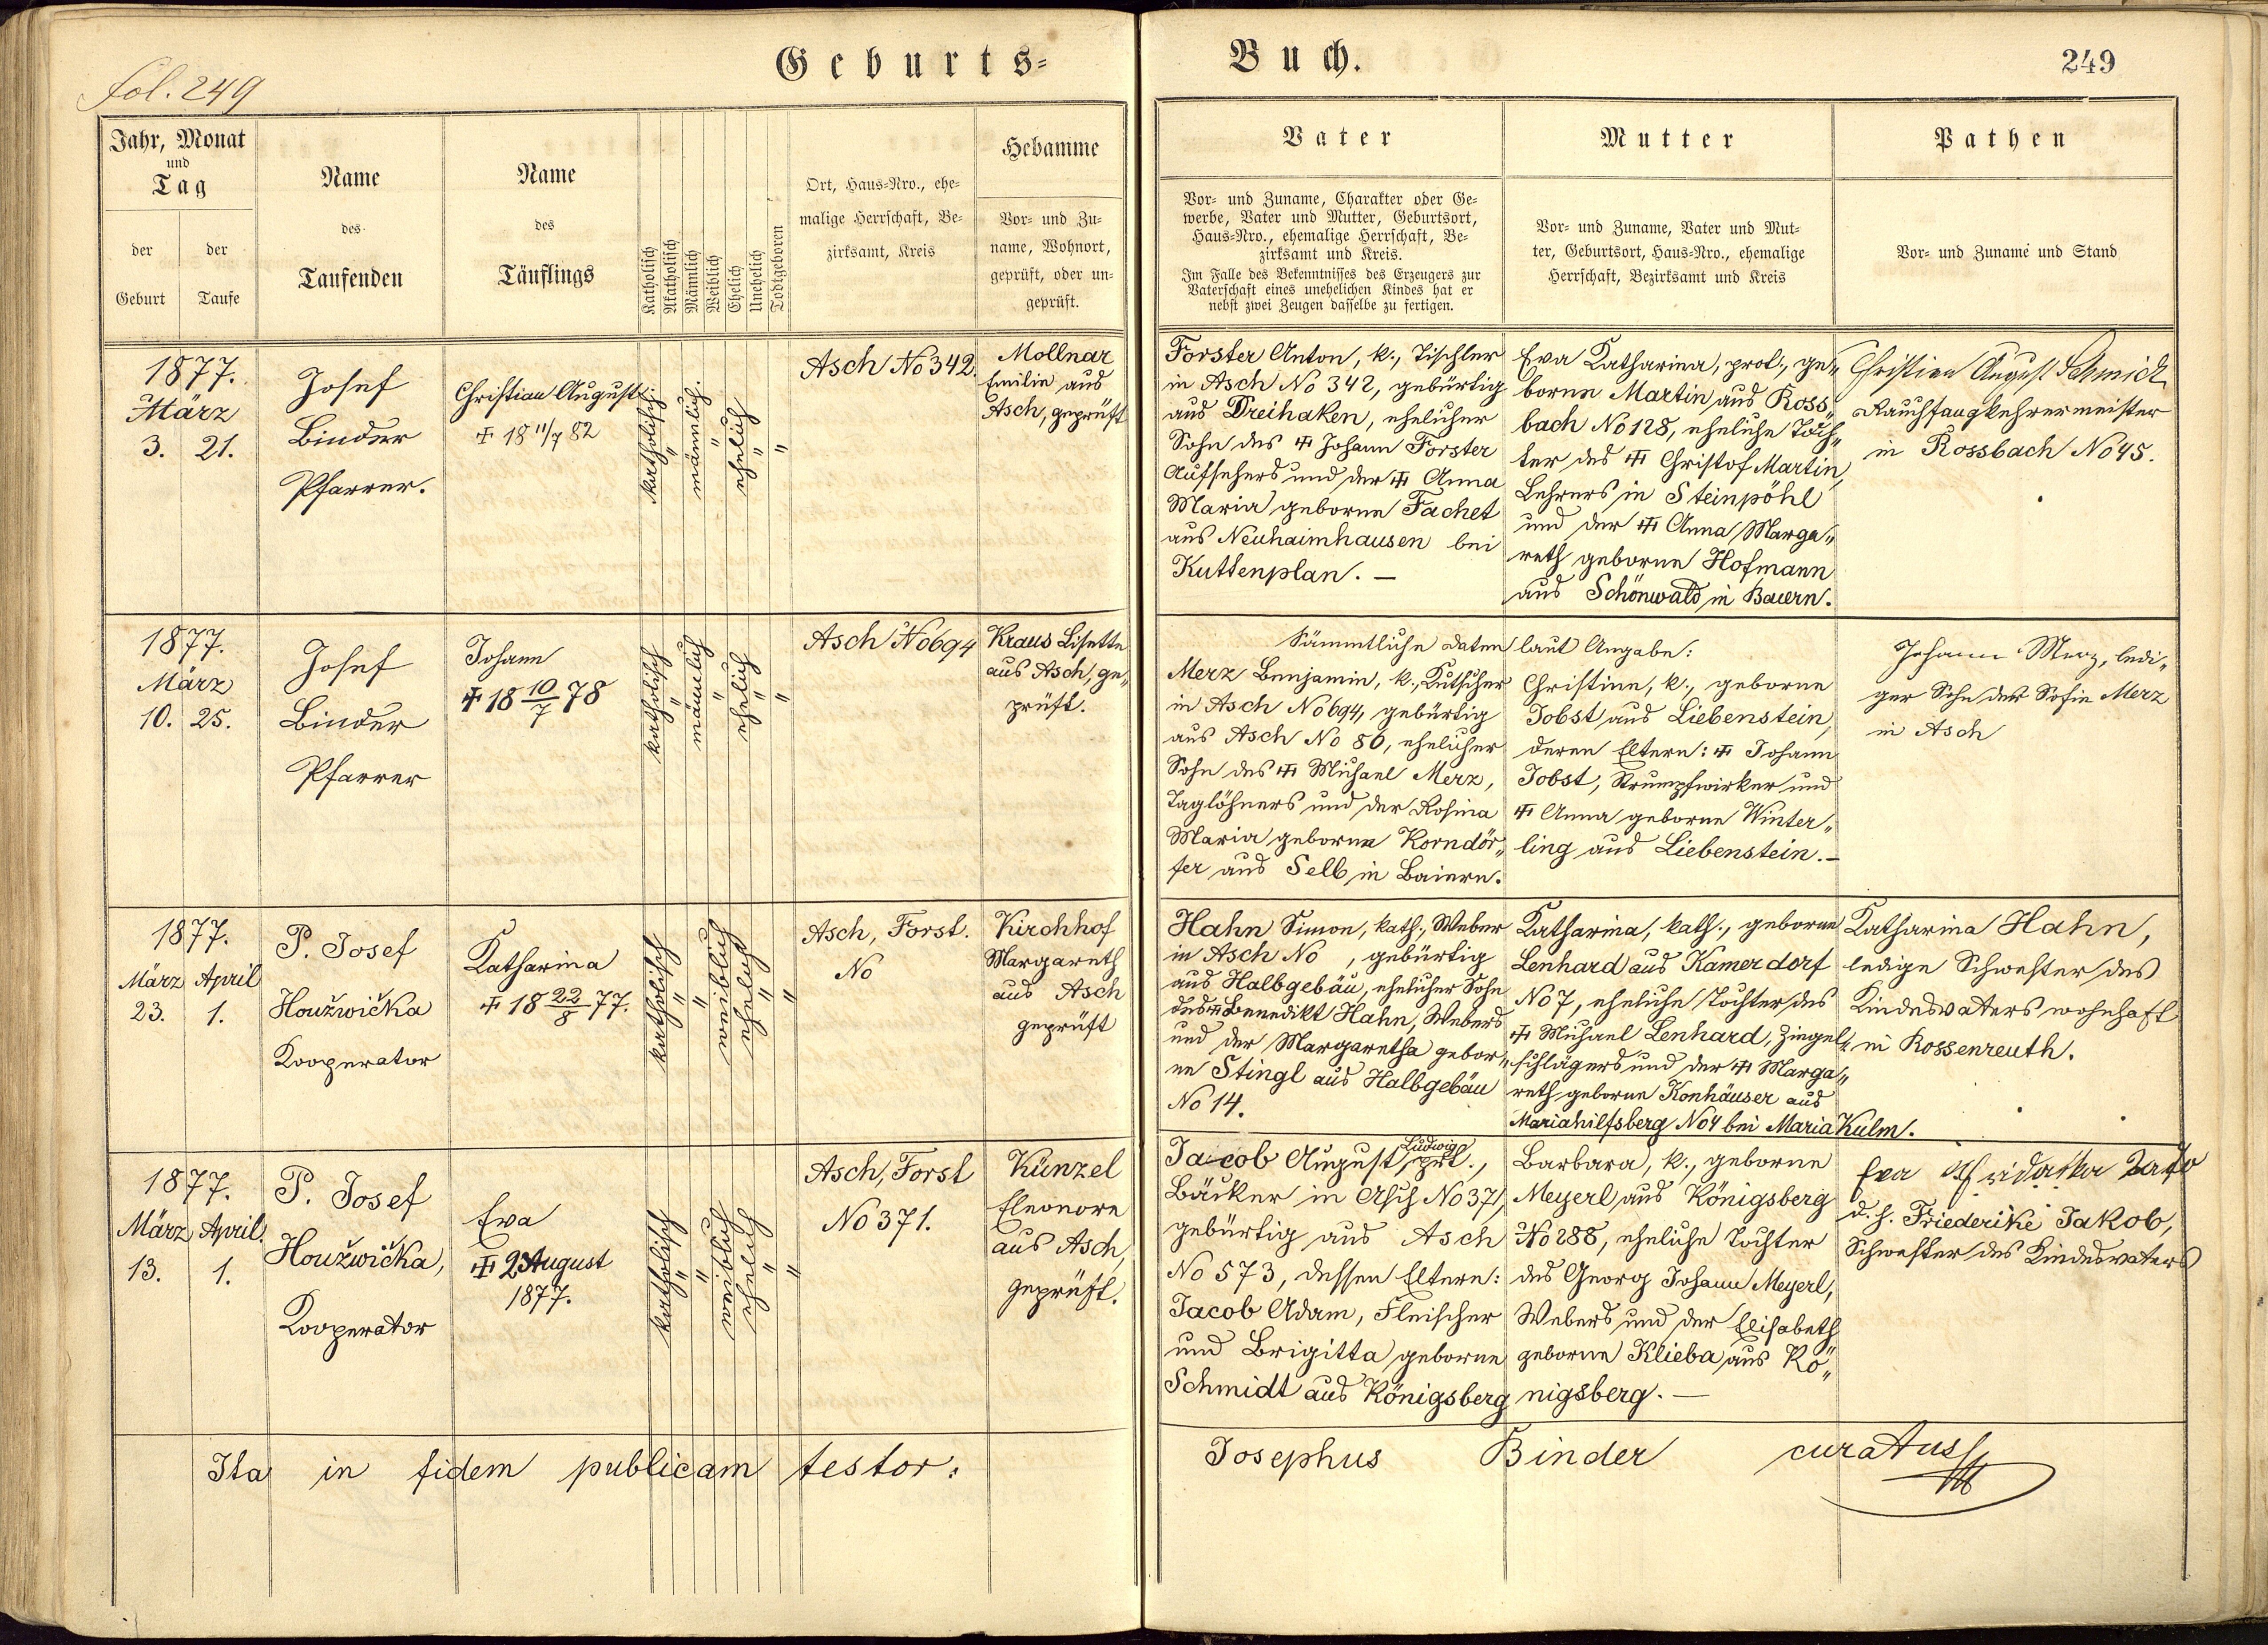 fol. 249
Geburts=
Buch.
249
Jahr, Monat
und
Tag
der
Geburt
der
Taufe
Name
des
Taufenden
Name
des
Täuflings
Katholisch
Akatholisch
Männlich
Weiblich
Ehelich
Unehelich
Todtgeboren
Ort, Haus=Nro., ehe=
malige Herrschaft, Be=
zirksamt, Kreis
Hebamme
Vor= und Zu=
name, Wohnort,
geprüft, oder un=
geprüft.
Vater
Vor= und Zuname, Charakter oder Ge=
werbe, Vater und Mutter, Geburtsort,
Haus=Nro., ehemalige Herrschaft, Be=
zirksamt und Kreis.
Im Falle des Bekenntnisses des Erzeugers zur
Vaterschaft eines unehelichen Kindes hat er
nebst zwei Zeugen dasselbe zu fertigen.
Mutter
Vor= und Zuname, Vater und Mut=
ter, Geburtsort, Haus=Nro., ehemalige
Herrschaft, Bezirksamt und Kreis
Pathen
Vor= und Zuname und Stand
1877.
März
3. 21.
Josef
Binder
Pfarrer.
Christian August
✝ 18 11/7 82
katholisch.
"
männlich.
"
ehelich
"
"
Asch No 342.
Mollnar
Emilie aus
Asch, geprüft
Forster Anton, k., Tischler
in Asch No 342, gebürtig
aus Dreihaken, ehelicher
Sohn des ✝ Johann Forster
Aufsehers und der ✝ Anna
Maria geborne Fachet
aus Neuhaimhausen bei
Kuttenplan. —
Eva Katharina, prot., ge„
borne Martin aus Ross„
bach No 128, eheliche Toch„
ter des ✝ Christof Martin,
Lehrers in Steinpöhl
und der ✝ Anna Marga„
reth geborne Hofmann
aus Schönwald in Baiern.
Christian August Schmidt
Rauchfangkehrermeister
in Rossbach No 45.
1877.
März
10. 25.
Josef
Binder
Pfarrer
Johann
✝ 18 10/7 78
katholisch
"
männlich
"
ehelich
"
"
Asch No 694
Kraus Lisette
aus Asch, ge„
prüft.
Sämmtliche Daten laut Angabe:
Merz Benjamin, k., Kutscher
in Asch No 694, gebürtig
aus Asch No 80, ehelicher
Sohn des ✝ Michael Merz,
Taglöhners und der Rosina
Maria geborne Korndör„
fer aus Selb in Baiern.
Christine, k., geborne
Jobst aus Liebenstein,
deren Eltern: ✝ Johann
Jobst, Strumpfwirker und
✝ Anna geborne Winter„
ling aus Liebenstein. —
Johann Merz, ledi„
ger Sohn der Sofie Merz
in Asch
1877.
März April
23. 1.
P. Josef
Houžwička
Kooperator
Katharina
✝ 18 22/8 77.
katholisch
"
"
weiblich
ehelich
"
"
Asch, Forst.
No
Kirchhof
Margareth
aus Asch
geprüft
Hahn Simon, kath., Weber
in Asch No , gebürtig
aus Halbgebäu, ehelicher Sohn
des ✝ Benedikt Hahn, Webers
und der Margaretha gebor„
ne Stingl aus Halbgebäu
No 14.
Katharina, kath., geborne
Lenhard aus Kamerdorf
No 7, eheliche Tochter des
✝ Michael Lenhard, Ziegel„
schlägers und der ✝ Marga„
reth geborne Konhäuser aus
Mariahilfsberg No 4 bei Maria Kulm.
Katharina Hahn,
ledige Schwester des
Kindesvaters wohnhaft
in Rossenreuth.
1877.
März April.
13. 1.
P. Josef
Houžwička,
Kooperator
Eva
✝ 2 August
1877.
katholisch
"
"
weiblich
ehelich
"
"
Asch, Forst
No 371.
Künzel
Eleonore
aus Asch,
geprüft.
Jacob August Ludwig, prt.,
Bäcker in Asch No 371,
gebürtig aus Asch
No 573, dessen Eltern:
Jacob Adam, Fleischer
und Brigitta geborne
Schmidt aus Königsberg
Barbara, k., geborne
Meyerl aus Königsberg
No 288, eheliche Tochter
des Georg Johann Meyerl,
Webers und der Elisabeth
geborne Klieba aus Kö„
nigsberg. —
Eva
d. h. Friederike Jakob,
Schwester des Kindesvaters
Ita in fidem publicam testor:
Josephus Binder curatus